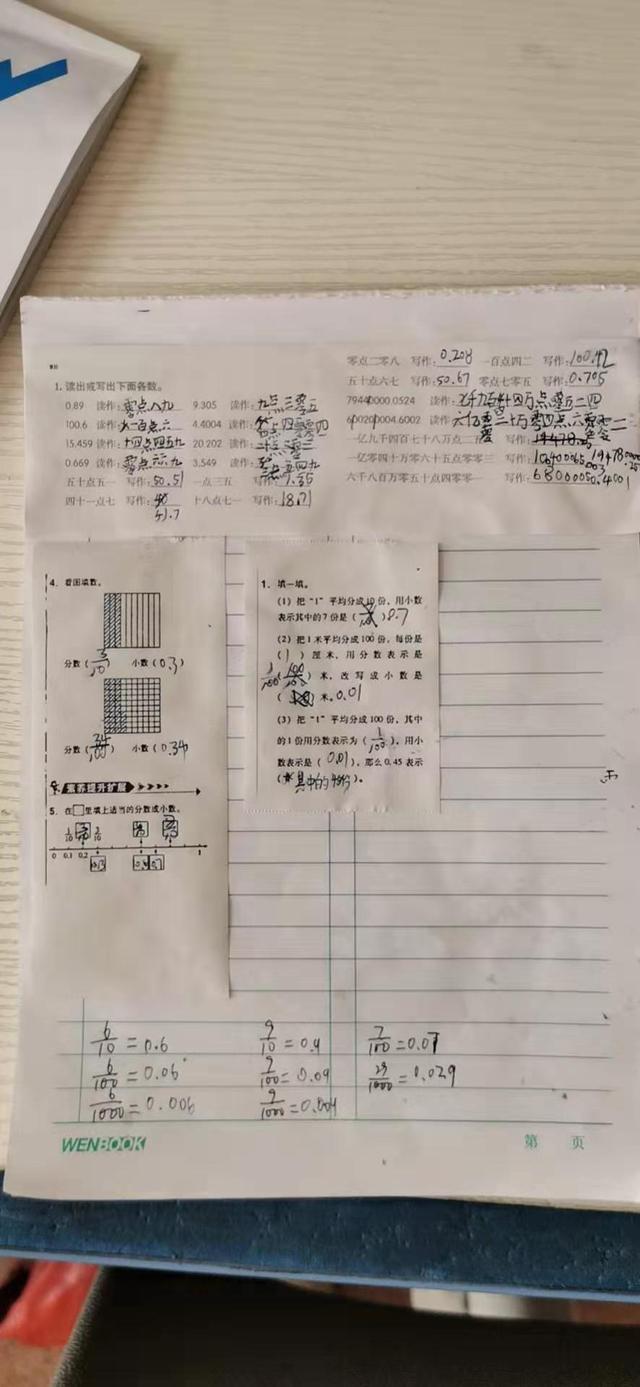 1. 读出或写出下面各数。
0.89 读作:零点八九 9.305 读作:九点三零五
100.6 读作:一百点六 4.4004 读作:四点四零零四
15.459 读作:十四点四五九 20.202 读作:二十点二零二
0.669 读作:零点六六九 3.549 读作:三点五四九
五十点五一 写作:50.51 一点三五 写作:1.35
四十一点七 写作: 41.7 十八点七一 写作:18.71
零点二零八 写作:0.208 一百点四二 写作:100.42
五十点六七 写作:50.67 零点七零五 写作:0.705
79440000.0524 读作:
600200004.6002 读作:
一亿九千四百七十八万点二五 写作:
一亿零四十万零六十五点零零三 写作:
六千八百万零五十点四零零一 写作:68000050.4001
4. 看图填数。
分数(3/10) 小数(0.3)
分数(34/100) 小数(0.34)
素养提升扩展
5. 在□里填上适当的分数或小数。
1/10 2/10
0 0.1 0.2 1
0.3
1. 填一填。
(1) 把“1”平均分成10份,用小数
表示其中的7份是( )0.7
(2) 把1米平均分成100份,每份是
(1)厘米,用分数表示是
1/100( )米,改写成小数是
( )米。0.01
(3) 把“1”平均分成100份,其中
的1份用分数表示为(1/100),用小
数表示是(0.01),那么0.45表示
(其中的45份)。
6/10=0.6 9/10=0.9 7/100=0.07
6/100=0.06 9/100=0.09 29/1000=0.029
6/1000=0.006 9/1000=0.009
WENBOOK 第 页